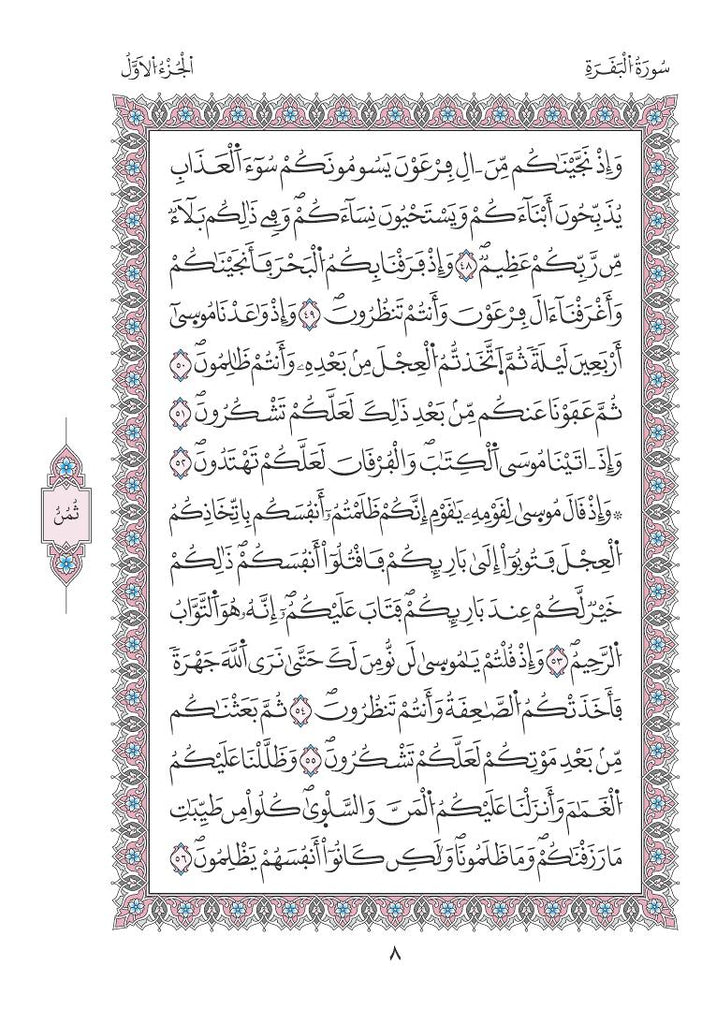 سُورَةُ الْبَقَرَةِ
الْجُزْءُ الْأَوَّلُ
وَإِذْ نَجَّيْنَٰكُم مِّنَ ـالِ فِرْعَوْنَ يَسُومُونَكُمْ سُوٓءَ اَ۬لْعَذَابِ
يُذَبِّحُونَ أَبْنَآءَكُمْ وَيَسْتَحْيُونَ نِسَآءَكُمْۖ وَفِے ذَٰلِكُم بَلَآءٞ
مِّن رَّبِّكُمْ عَظِيمٞۖ ٤٨ وَإِذْ فَرَقْنَا بِكُمُ اُ۬لْبَحْرَ فَأَنجَيْنَٰكُمْ
وَأَغْرَقْنَآ ءَالَ فِرْعَوْنَ وَأَنتُمْ تَنظُرُونَۖ ٤٩ وَإِذْ وَٰعَدْنَا مُوس۪يٰٓ
أَرْبَعِينَ لَيْلَةٗ ثُمَّ اَ۪تَّخَذتُّمُ اُ۬لْعِجْلَ مِنۢ بَعْدِهِۦ وَأَنتُمْ ظَٰلِمُونَۖ ٥٠
ثُمَّ عَفَوْنَا عَنكُم مِّنۢ بَعْدِ ذَٰلِكَ لَعَلَّكُمْ تَشْكُرُونَۖ ٥١
وَإِذَ ـاتَيْنَا مُوسَي اَ۬لْكِتَٰبَ وَالْفُرْقَانَ لَعَلَّكُمْ تَهْتَدُونَۖ ٥٢
۞ وَإِذْ قَالَ مُوس۪يٰ لِقَوْمِهِۦ يَٰقَوْمِ إِنَّكُمْ ظَلَمْتُمُۥٓ أَنفُسَكُم بِاتِّخَاذِكُمُ
اُ۬لْعِجْلَ فَتُوبُوٓاْ إِلَيٰ بَارِئِكُمْ فَاقْتُلُوٓاْ أَنفُسَكُمْۖ ذَٰلِكُمْ
خَيْرٞ لَّكُمْ عِندَ بَارِئِكُمْۖ فَتَابَ عَلَيْكُمُۥٓۖ إِنَّهُۥ هُوَ اَ۬لتَّوَّابُ
اُ۬لرَّحِيمُۖ ٥٣ وَإِذْ قُلْتُمْ يَٰمُوس۪يٰ لَن نُّومِنَ لَكَ حَتَّيٰ نَرَي اَ۬للَّهَ جَهْرَةٗ
فَأَخَذَتْكُمُ اُ۬لصَّٰعِقَةُ وَأَنتُمْ تَنظُرُونَۖ ٥٤ ثُمَّ بَعَثْنَٰكُم
مِّنۢ بَعْدِ مَوْتِكُمْ لَعَلَّكُمْ تَشْكُرُونَۖ ٥٥ وَظَلَّلْنَا عَلَيْكُمُ
اُ۬لْغَمَٰمَ وَأَنزَلْنَا عَلَيْكُمُ اُ۬لْمَنَّ وَالسَّلْو۪يٰۖ كُلُواْ مِن طَيِّبَٰتِ
مَا رَزَقْنَٰكُمْۖ وَمَا ظَلَمُونَاۖ وَلَٰكِن كَانُوٓاْ أَنفُسَهُمْ يَظْلِمُونَۖ ٥٦
ثُمُنُ
٨